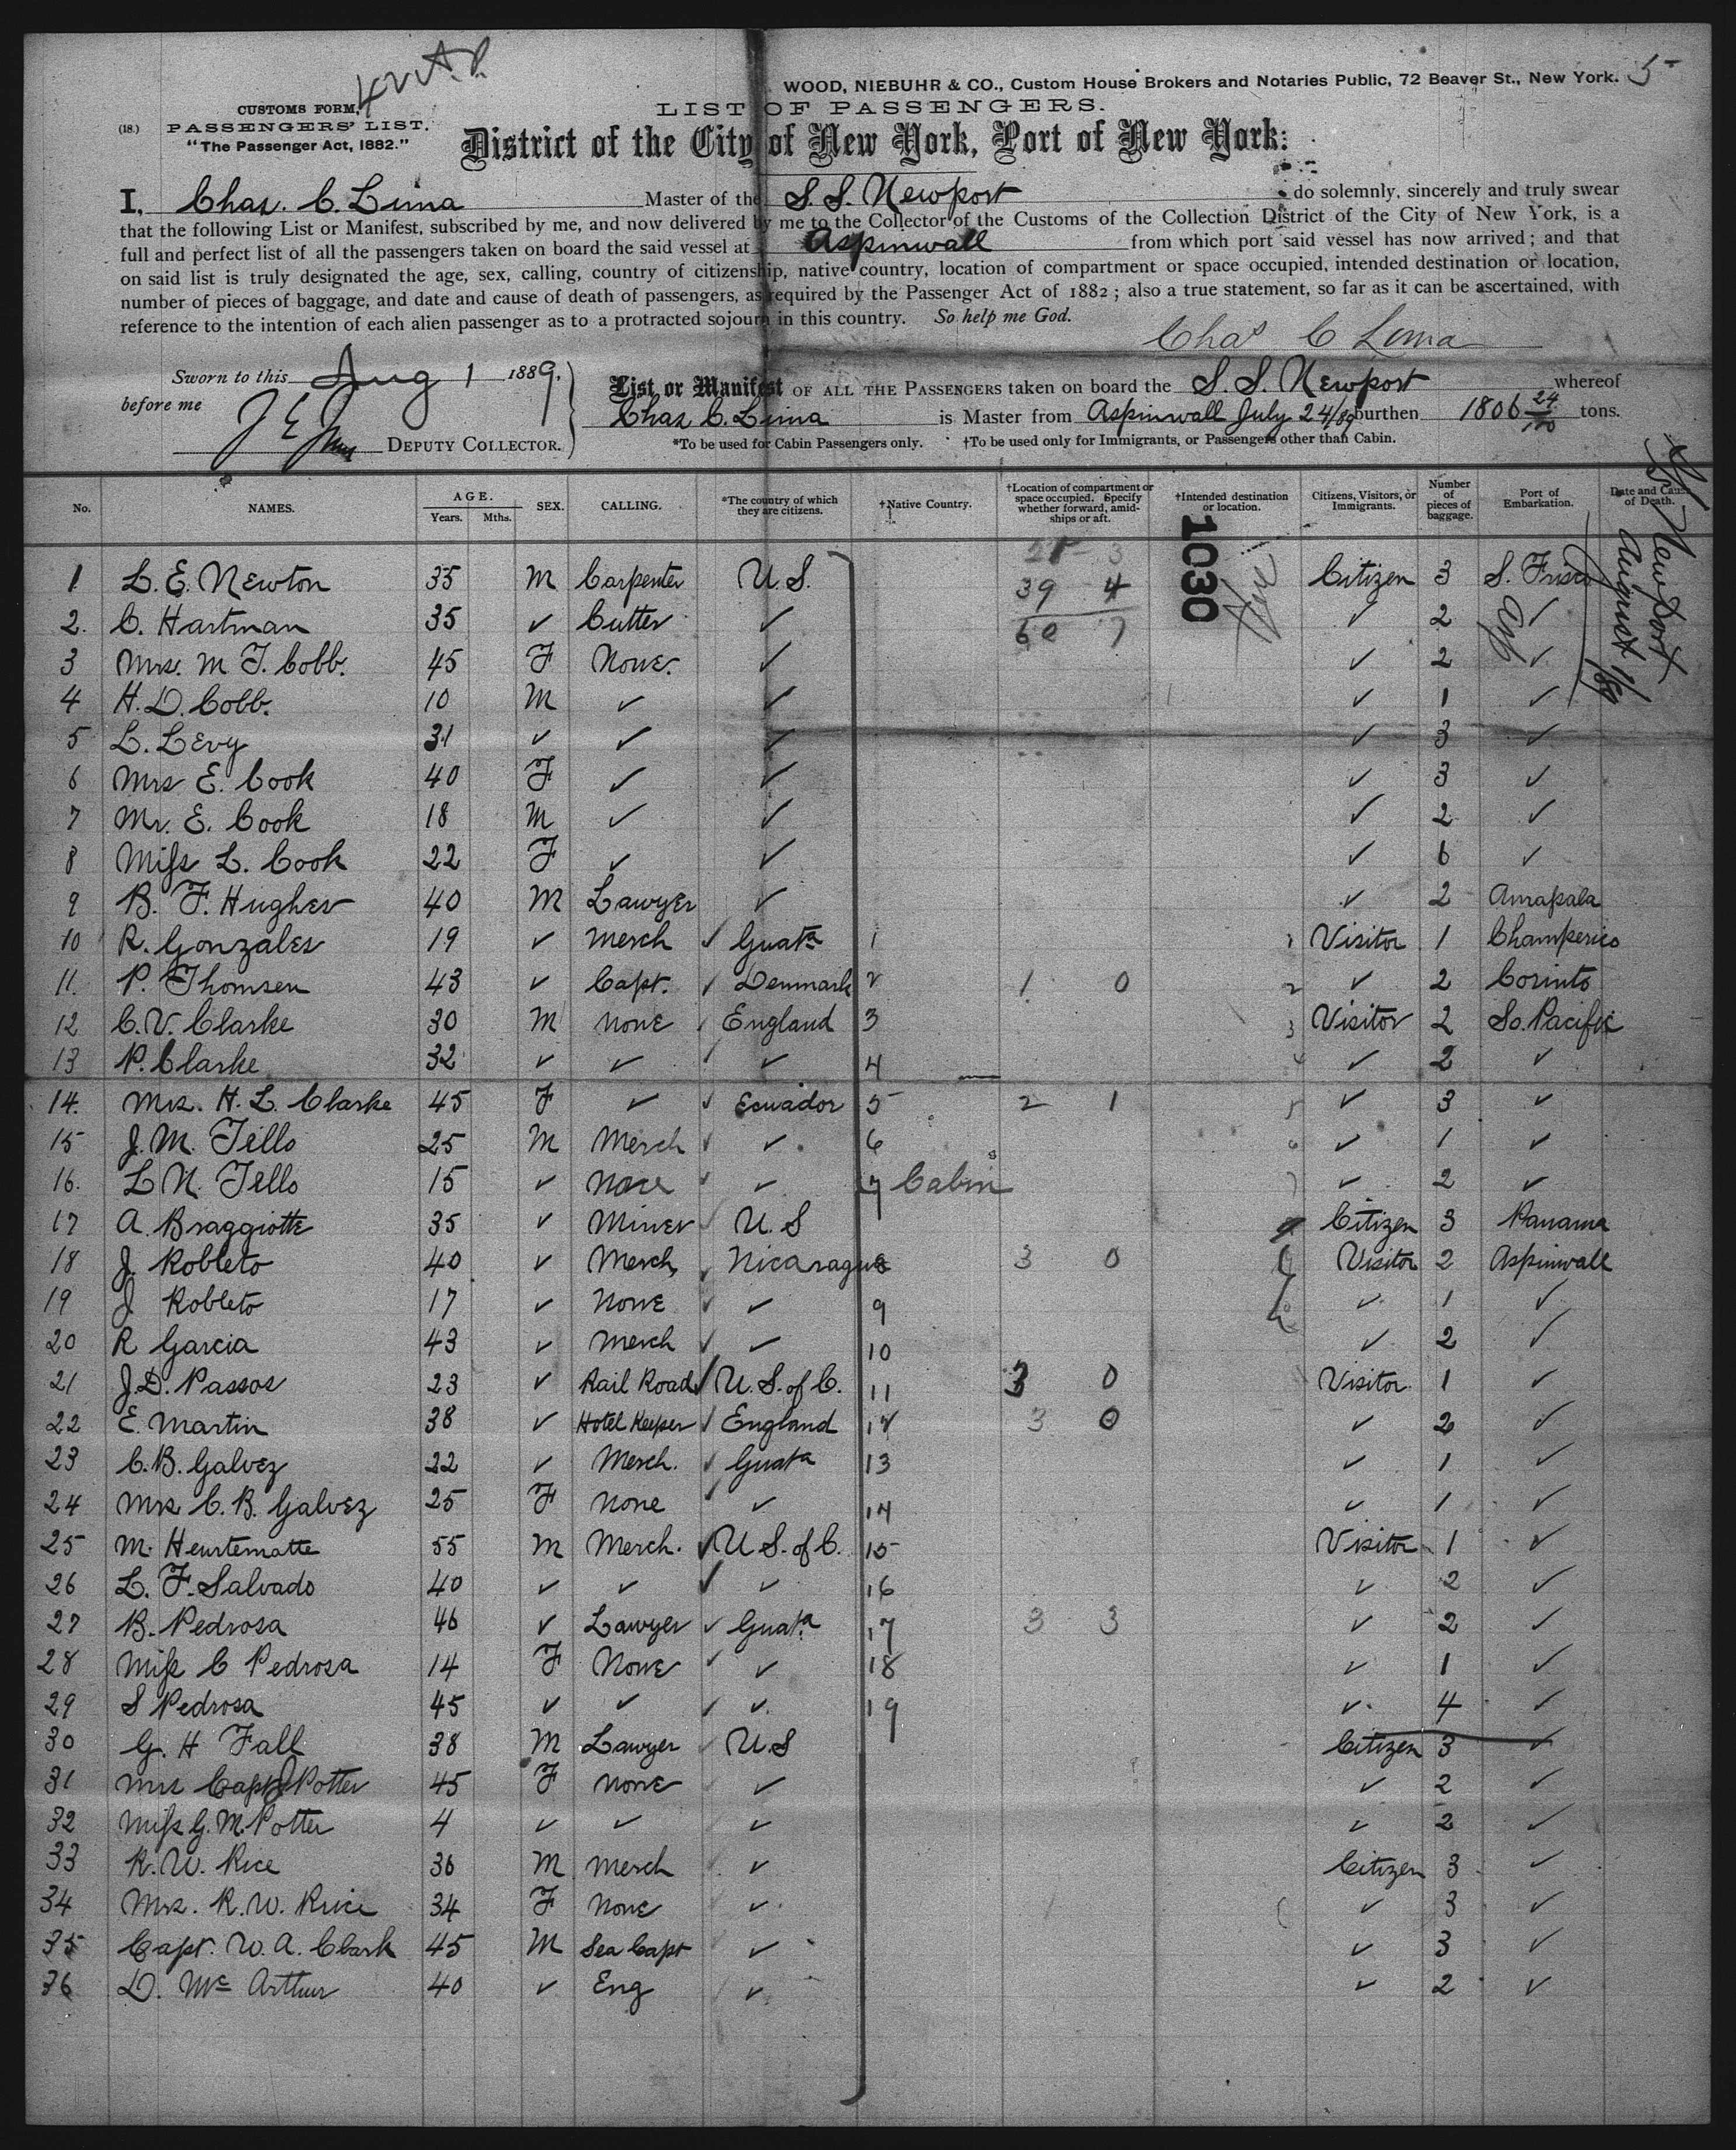 WOOD, NIEBUHR & CO., Custom House Brokers and Notaries Public, 72 Beaver St., New York. 5
CUSTOMS FORM,
LIST OF PASSENGERS.
(18.) PASSENGERS' LIST.
"The Passenger Act, 1882."
District of the City of New York, Port of New York:
I, Chas. C. Lima Master of the S. S. Newport do solemnly, sincerely and truly swear
that the following List or Manifest, subscribed by me, and now delivered by me to the Collector of the Customs of the Collection District of the City of New York, is a
full and perfect list of all the passengers taken on board the said vessel at Aspinwall from which port said vessel has now arrived; and that
on said list is truly designated the age, sex, calling, country of citizenship, native country, location of compartment or space occupied, intended destination or location,
number of pieces of baggage, and date and cause of death of passengers, as required by the Passenger Act of 1882; also a true statement, so far as it can be ascertained, with
reference to the intention of each alien passenger as to a protracted sojourn in this country. So help me God.
Chas C Lima
Sworn to this Aug 1 1889.
before me
DEPUTY COLLECTOR.
List or Manifest OF ALL THE PASSENGERS taken on board the S. S. Newport whereof
Chas C. Lima is Master from Aspinwall July 24/89 burthen 1806 24/100 tons.
*To be used for Cabin Passengers only. †To be used only for Immigrants, or Passengers other than Cabin.
No. NAMES. AGE. Years. Mths. SEX. CALLING. *The country of which they are citizens. †Native Country. †Location of compartment or space occupied. Specify whether forward, amidships or aft. †Intended destination or location. Citizens, Visitors, or Immigrants. Number of pieces of baggage. Port of Embarkation. Date and Cause of Death.
SS Newport
August 1/89
1030
21 3
39 4
60 7
1 L. E. Newton 35 M Carpenter U. S. Citizen 3 S. Frisco
2. C. Hartman 35 ✓ Cutter ✓ ✓ 2 ✓
3 Mrs. M T. Cobb. 45 F None. ✓ ✓ 2 ✓
4 H. D. Cobb. 10 M ✓ ✓ ✓ 1 ✓
5 L. Levy 31 ✓ ✓ ✓ ✓ 3 ✓
6 Mrs E. Cook 40 F ✓ ✓ ✓ 3 ✓
7 Mr. E. Cook 18 M ✓ ✓ ✓ 2 ✓
8 Miss L. Cook 22 F ✓ ✓ ✓ 6 ✓
9 B. F. Hughes 40 M Lawyer ✓ ✓ 2 Amapala
10 R. Gonzales 19 ✓ Merch ✓ Guata 1 1 Visitor 1 Champerico
11. P. Thomsen 43 ✓ Capt. ✓ Denmark 2 1 0 2 ✓ 2 Corinto
12 C. V. Clarke 30 M None ✓ England 3 3 Visitor 2 So. Pacific
13 P. Clarke 32 ✓ ✓ ✓ ✓ 4 4 ✓ 2 ✓
14. Mrs. H. L. Clarke 45 F ✓ ✓ Ecuador 5 2 1 5 ✓ 3 ✓
15 J. M. Tello 25 M Merch ✓ ✓ 6 6 ✓ 1 ✓
16. L N. Tello 15 ✓ None ✓ ✓ 7 Cabin 7 ✓ 2 ✓
17 A. Braggiotte 35 ✓ Miner ✓ U. S Citizen 3 Panama
18 J. Robleto 40 ✓ Merch, ✓ Nicaragua 8 3 0 Visitor 2 Aspinwall
19 J Robleto 17 ✓ None ✓ ✓ 9 ✓ 1 ✓
20 R Garcia 43 ✓ Merch ✓ ✓ 10 ✓ 2 ✓
21 J. D. Passos 23 ✓ Rail Road ✓ U. S. of C. 11 3 0 Visitor 1 ✓
22 E. Martin 38 ✓ Hotel Keeper ✓ England 12 3 0 ✓ 2 ✓
23 C. B. Galvez 22 ✓ Merch. ✓ Guata 13 ✓ 1 ✓
24 Mrs C. B. Galvez 25 F None ✓ ✓ 14 ✓ 1 ✓
25 M. Heurtematte 55 M Merch. ✓ U S. of C. 15 Visitor 1 ✓
26 L. F. Salvado 40 ✓ ✓ ✓ ✓ 16 ✓ 2 ✓
27 B. Pedrosa 46 ✓ Lawyer ✓ Guata 17 3 3 ✓ 2 ✓
28 Miss C Pedrosa 14 F None ✓ ✓ 18 ✓ 1 ✓
29 S Pedrosa 45 ✓ ✓ ✓ ✓ 19 ✓ 4 ✓
30 G. H Fall 38 M Lawyer ✓ U. S Citizen 3 ✓
31 Mrs Capt J Potter 45 F None ✓ ✓ 2 ✓
32 Miss G. M. Potter 4 ✓ ✓ ✓ ✓ 2 ✓
33 R. W. Rice 36 M Merch ✓ Citizen 3 ✓
34 Mrs. R. W. Rice 34 F None ✓ ✓ 3 ✓
35 Capt. W. A. Clark 45 M Sea Capt ✓ ✓ 3 ✓
36 D. Mc Arthur 40 ✓ Eng ✓ ✓ 2 ✓